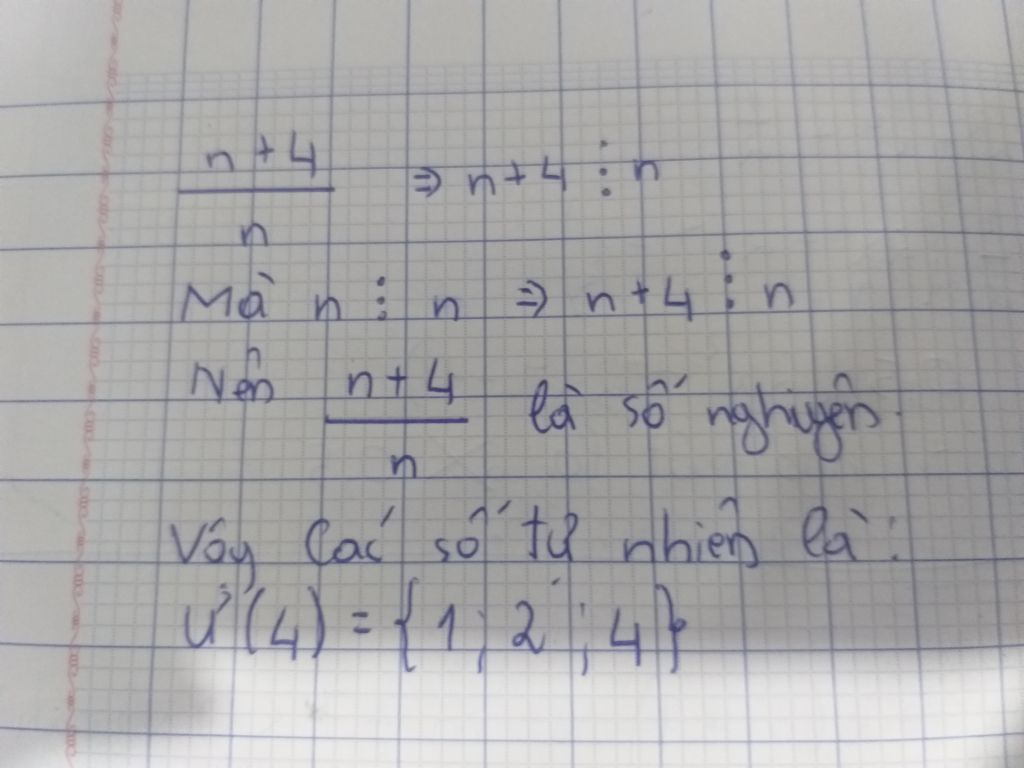 n + 4 / n ⇒ n + 4 ⋮ n
Mà n ⋮ n ⇒ n + 4 ⋮ n
Nên n + 4 / n là số nghuyên
Vây Các số tự nhiên là:
Ư(4) = {1; 2; 4}